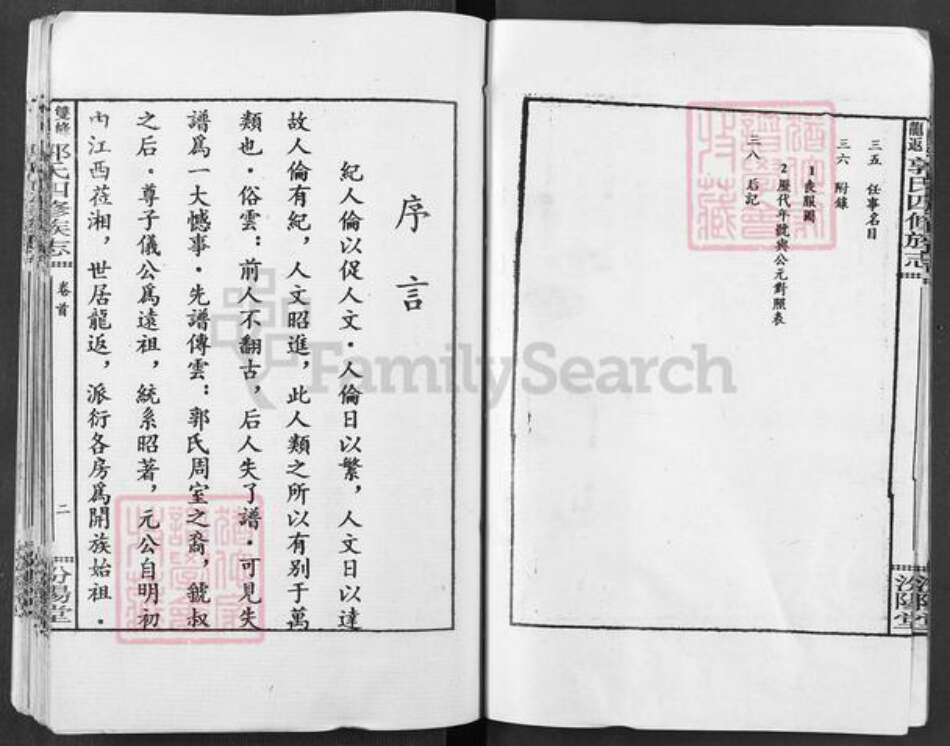 龍返
郭氏四修族志
汾陽堂
三五 任事名目
三六 附錄
1 喪服圖
2 歷代年號與公元對照表
三八 后記
序言
紀人倫以促人文·人倫日以繁，人文日以達
故人倫有紀，人文昭進，此人類之所以有别于萬
類也·俗雲：前人不翻古，后人失了譜·可見失
譜爲一大憾事·先譜傳雲：郭氏周室之裔，虢叔
之后·尊子儀公爲遠祖，統系昭著，元公自明初
由江西莅湘，世居龍返，派衍各房爲開族始祖·
郭氏四修族志
卷首
二
汾陽堂
FamilySearch